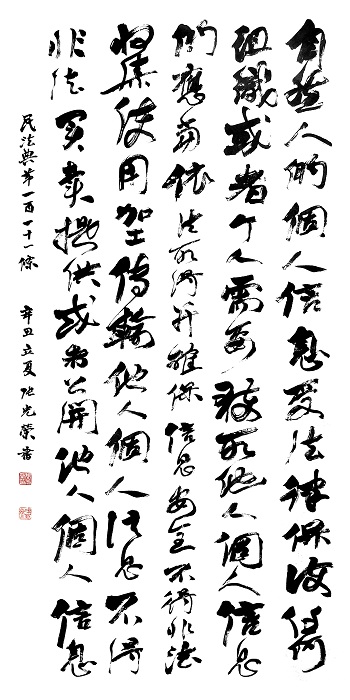 自然人的個人信息受法律保護任何
組織或者个人需要獲取他人個人信息
的應當依法取得并確保信息安全不得非法
收集使用加工傳輸他人個人信息不得
非法買賣提供或者公開他人個人信息
民法典第一百一十一條 辛丑立夏 張光榮書